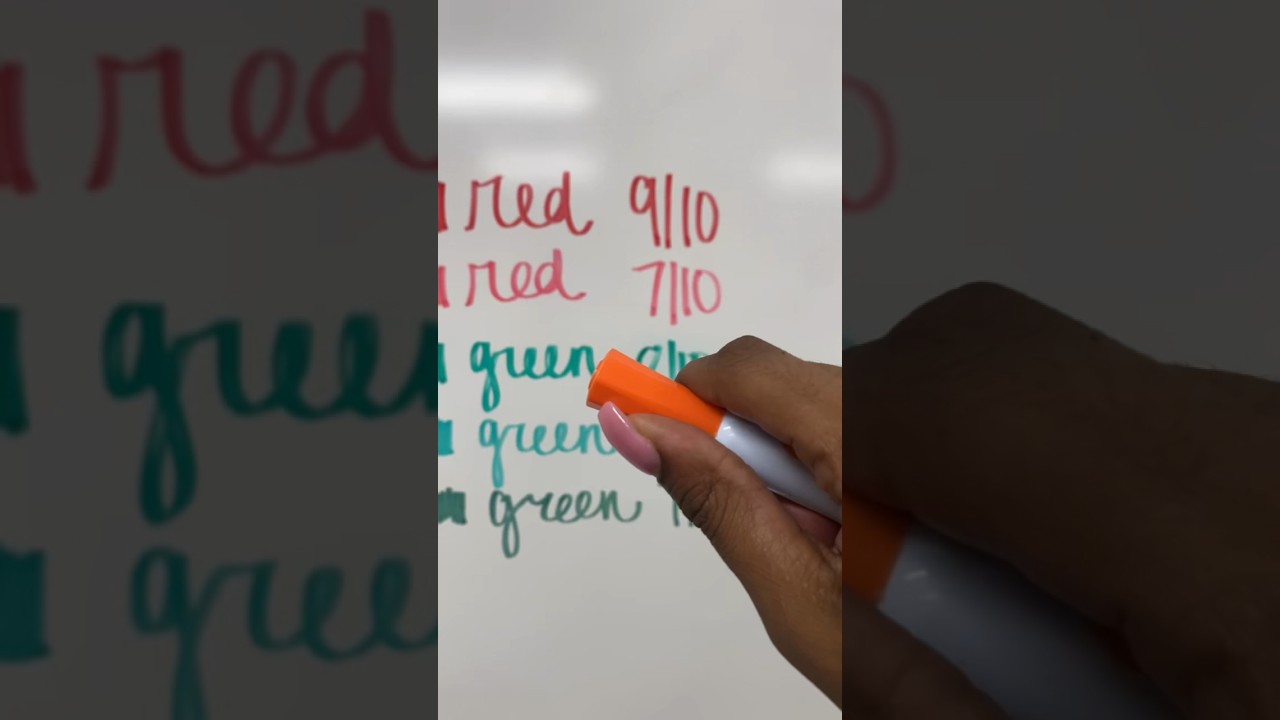 red 9/10
red 7/10
green
green
green